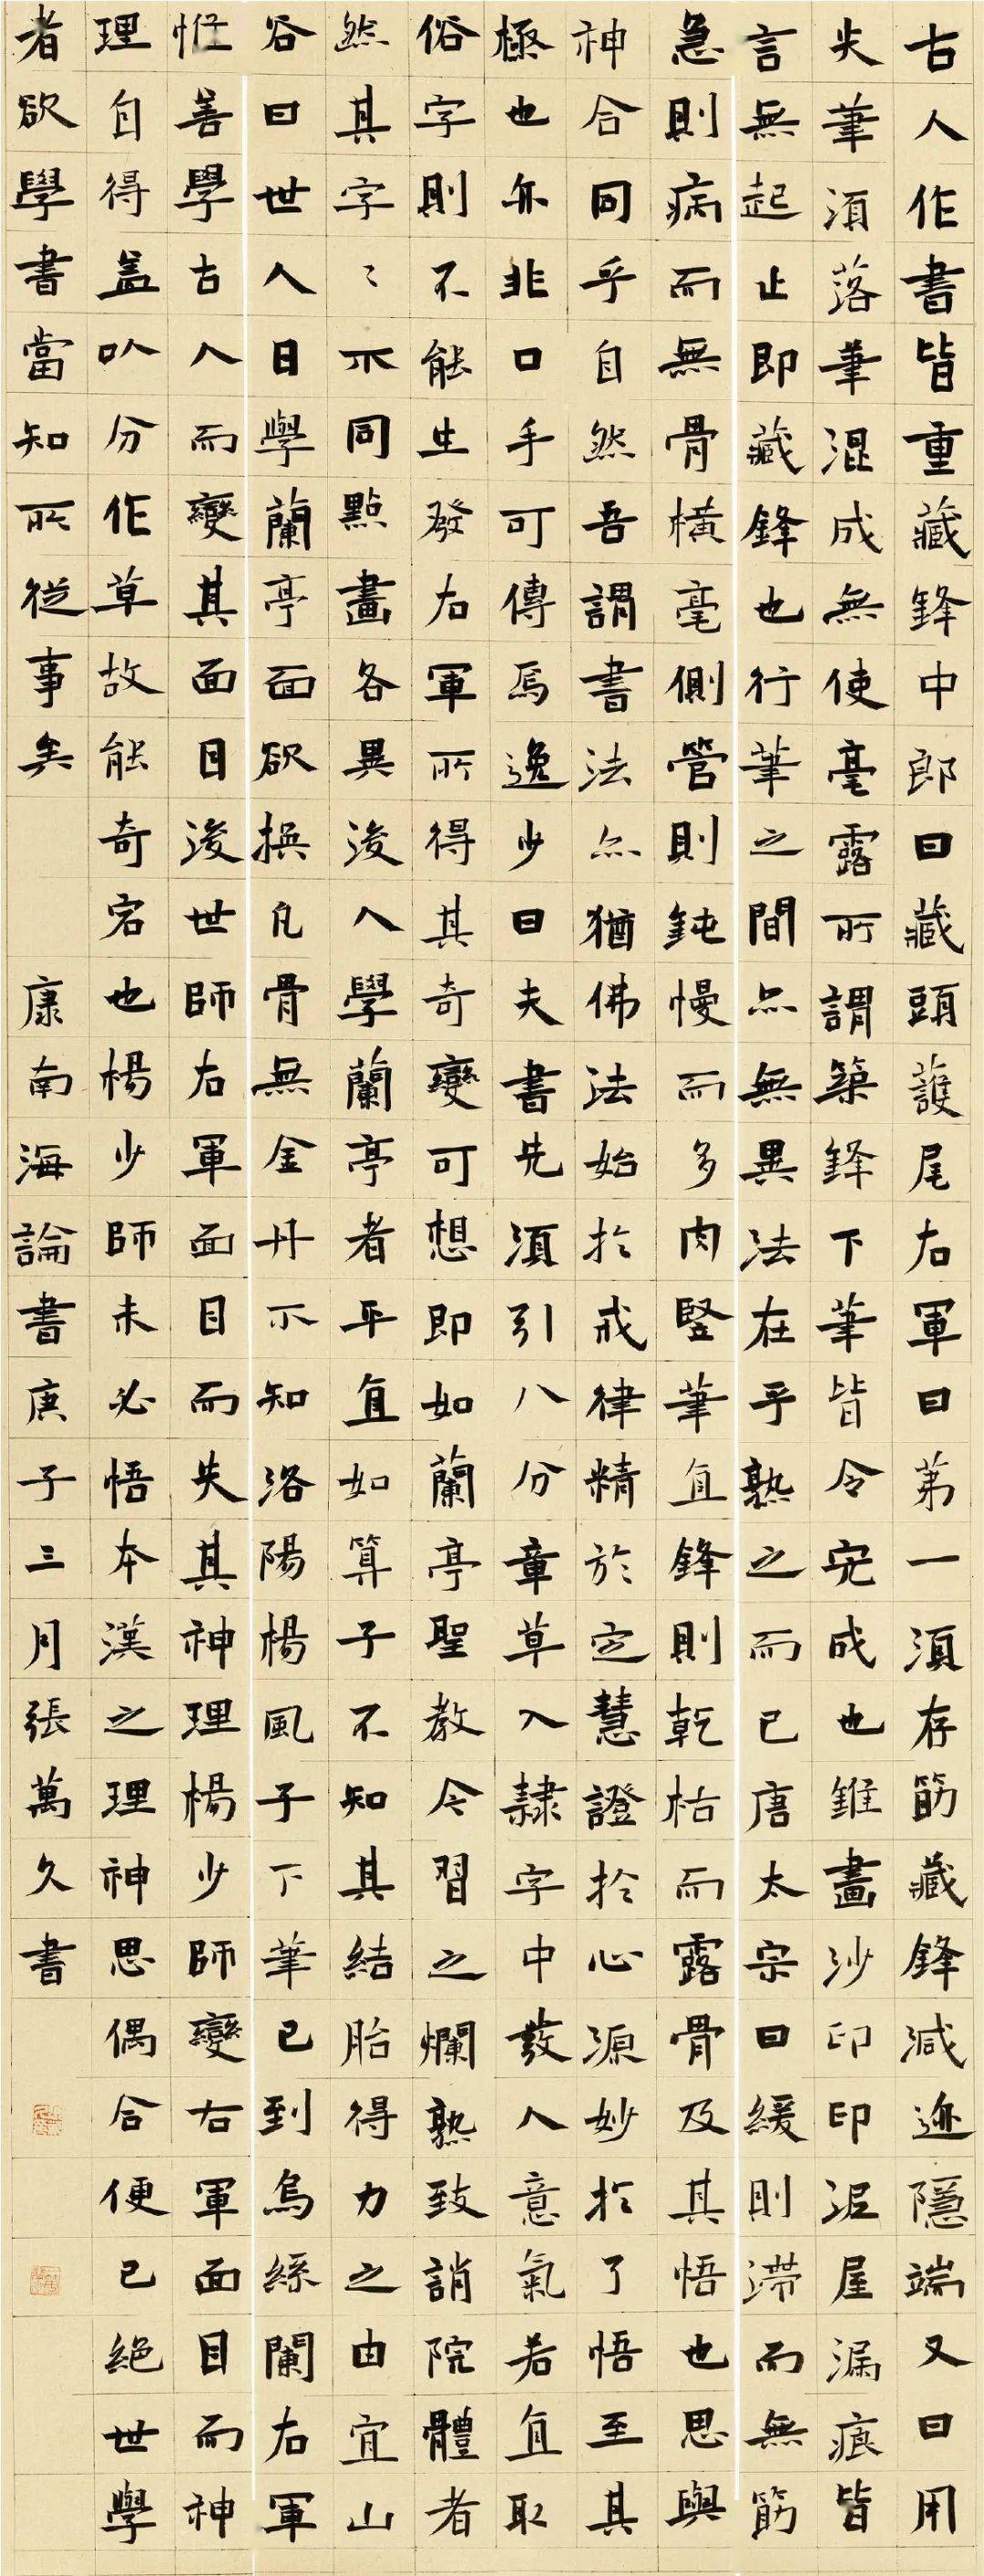 古人作書皆重藏鋒中郎曰藏頭護尾右軍曰第一須存筋藏鋒滅迹隱端又曰用
尖筆須落筆混成無使毫露所謂築鋒下筆皆令完成也錐畫沙印印泥屋漏痕皆
言無起止即藏鋒也行筆之間亦無異法在乎熟之而已唐太宗曰緩則滯而無筋
急則病而無骨橫毫側管則鈍慢而多肉豎筆直鋒則乾枯而露骨及其悟也思與
神合同乎自然吾謂書法亦猶佛法始於戒律精於定慧證於心源妙於了悟至其
極也亦非口手可傳焉逸少曰夫書先須引八分章草入隸字中發人意氣若直取
俗字則不能生發右軍所得其奇變可想即如蘭亭聖教今習之爛熟致誚院體者
然其字々不同點畫各異後人學蘭亭者平直如算子不知其結胎得力之由宜山
谷曰世人日學蘭亭面欲換凡骨無金丹不知洛陽楊風子下筆已到烏絲闌右軍
惟善學古人而變其面目後世師右軍面目而失其神理楊少師變右軍面目而神
理自得蓋以分作草故能奇宕也楊少師未必悟本漢之理神思偶合便已絕世學
者欲學書當知所從事矣 康南海論書庚子三月張萬久書